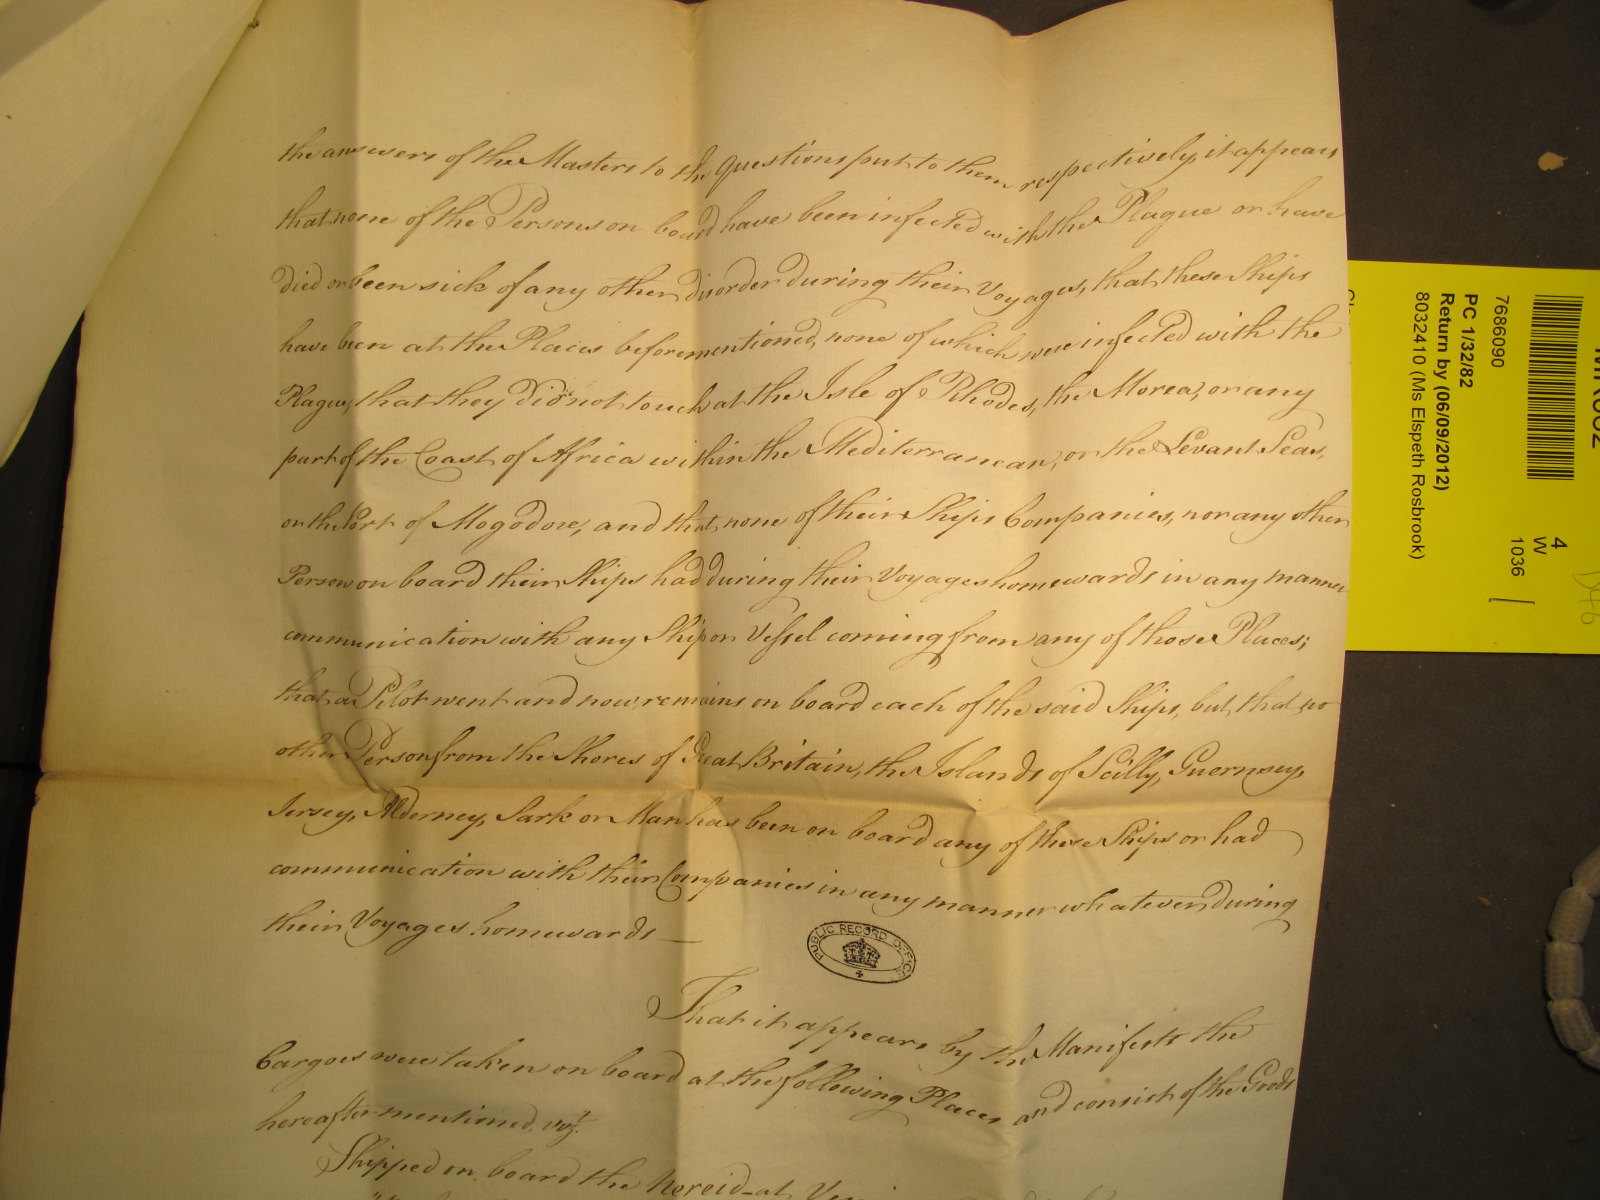 the answers of the Masters to the Questions put to them respectively, it appears
that none of the Persons on board have been infected with the Plague or have
died or been sick of any other disorder during their Voyages, that these Ships
have been at the Places beforementioned, none of which were infected with the
Plague, that they did not touch at the Isle of Rhodes, the Morea, or any
part of the Coast of Africa within the Mediterranean, or the Levant Seas,
or the Port of Mogodore, and that none of their Ships Companies, nor any other
Person on board their Ships had during their Voyages homewards in any manner
communication with any Ship or Vessel coming from any of those Places;
that a Pilot went and now remains on board each of the said Ships, but that no
other Person from the Shores of Great Britain, the Islands of Scilly, Guernsey,
Jersey, Alderney, Sark or Man has been on board any of these Ships or had
communication with their Companies in any manner whatever during
their Voyages homewards —
PUBLIC RECORD OFFICE
That it appears by the Manifests the
Cargoes were taken on board at the following Places and consist of the Goods
hereafter mentioned vizt.
Shipped on board the Nereid at
7686090
PC 1/32/82
Return by (06/09/2012)
8032410 (Ms Elspeth Rosbrook)
4
W
1036